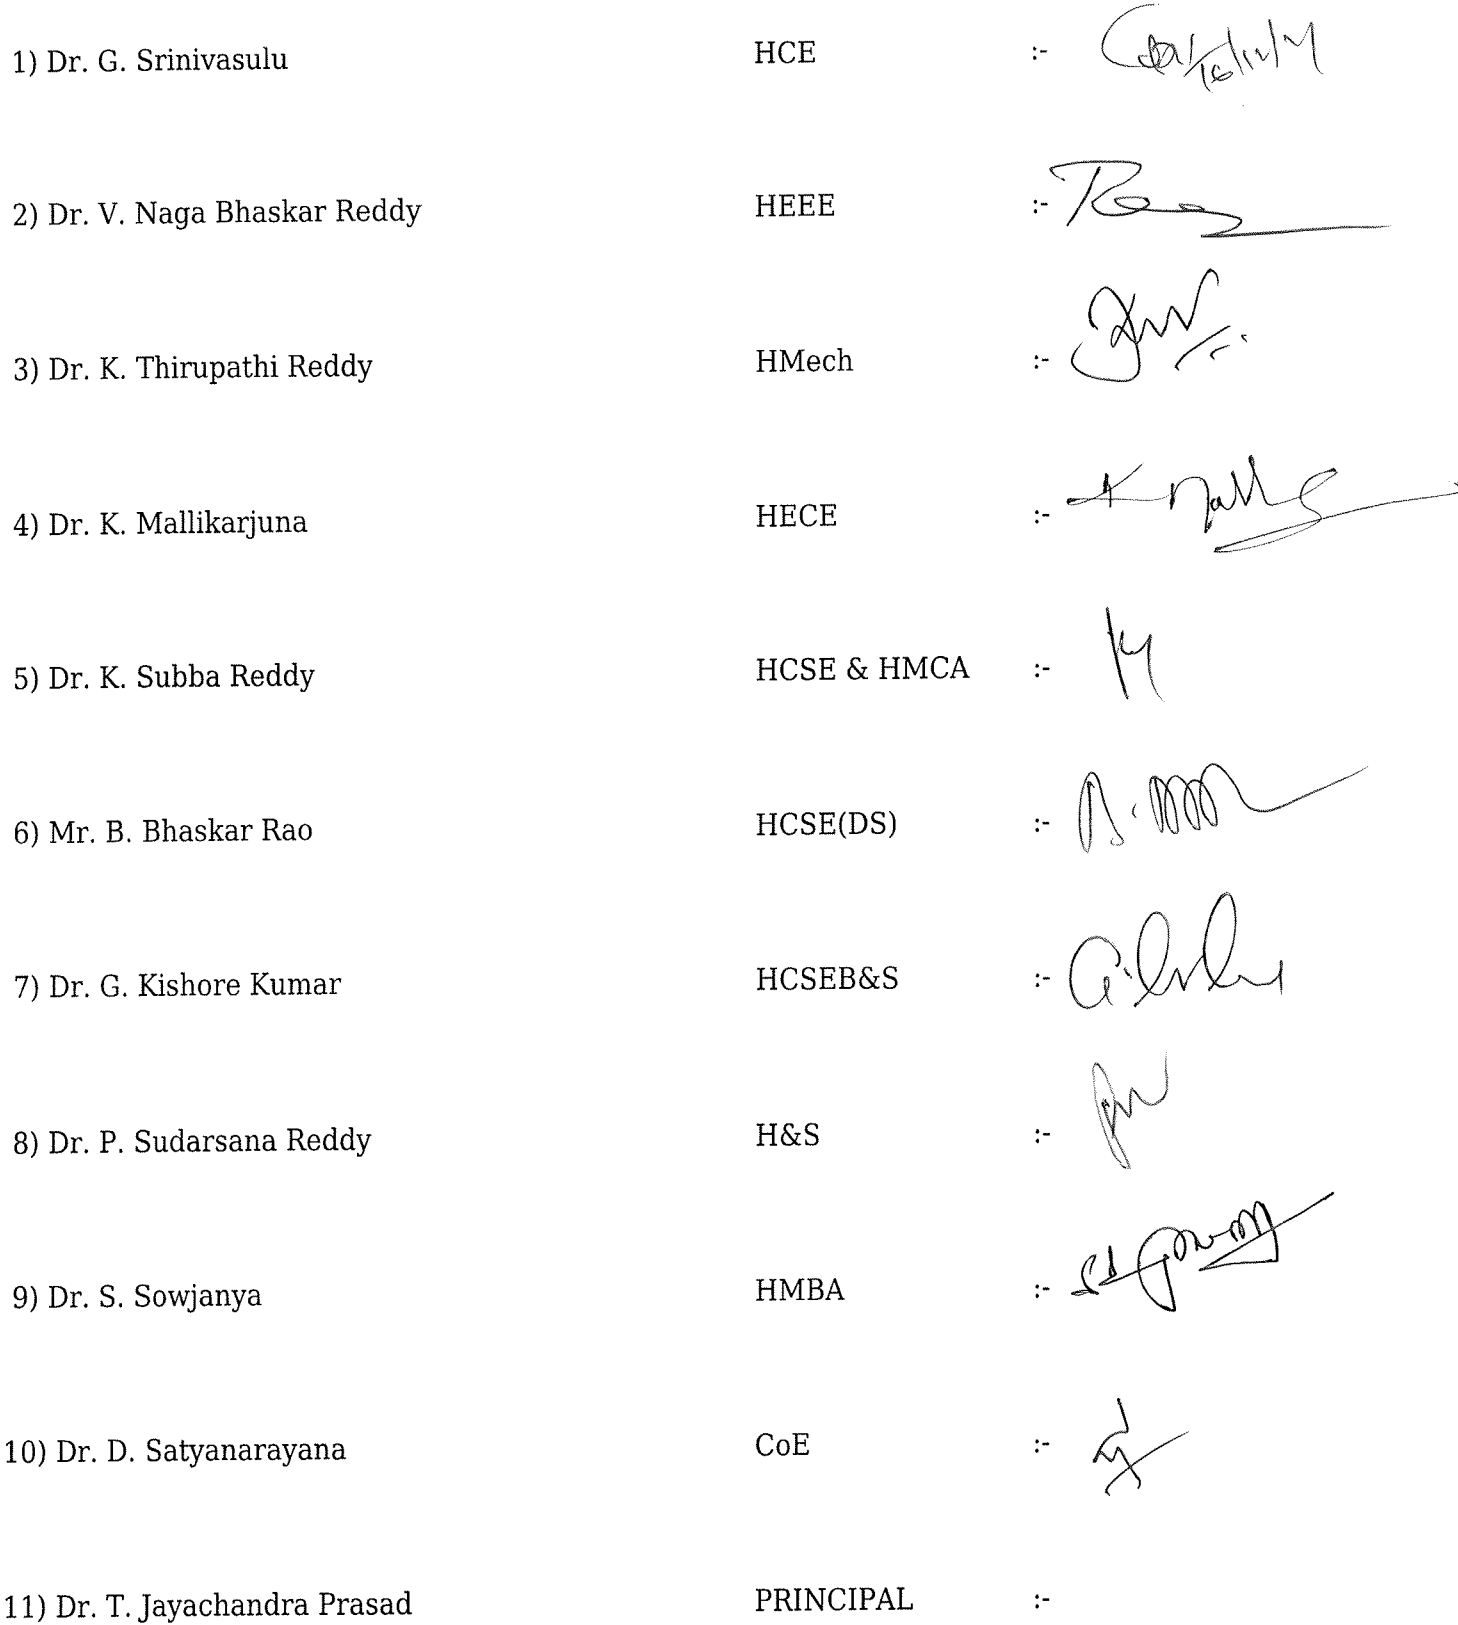 1) Dr. G. Srinivasulu HCE :-
2) Dr. V. Naga Bhaskar Reddy HEEE :-
3) Dr. K. Thirupathi Reddy HMech :-
4) Dr. K. Mallikarjuna HECE :-
5) Dr. K. Subba Reddy HCSE & HMCA :-
6) Mr. B. Bhaskar Rao HCSE(DS) :-
7) Dr. G. Kishore Kumar HCSEB&S :-
8) Dr. P. Sudarsana Reddy H&S :-
9) Dr. S. Sowjanya HMBA :-
10) Dr. D. Satyanarayana CoE :-
11) Dr. T. Jayachandra Prasad PRINCIPAL :-